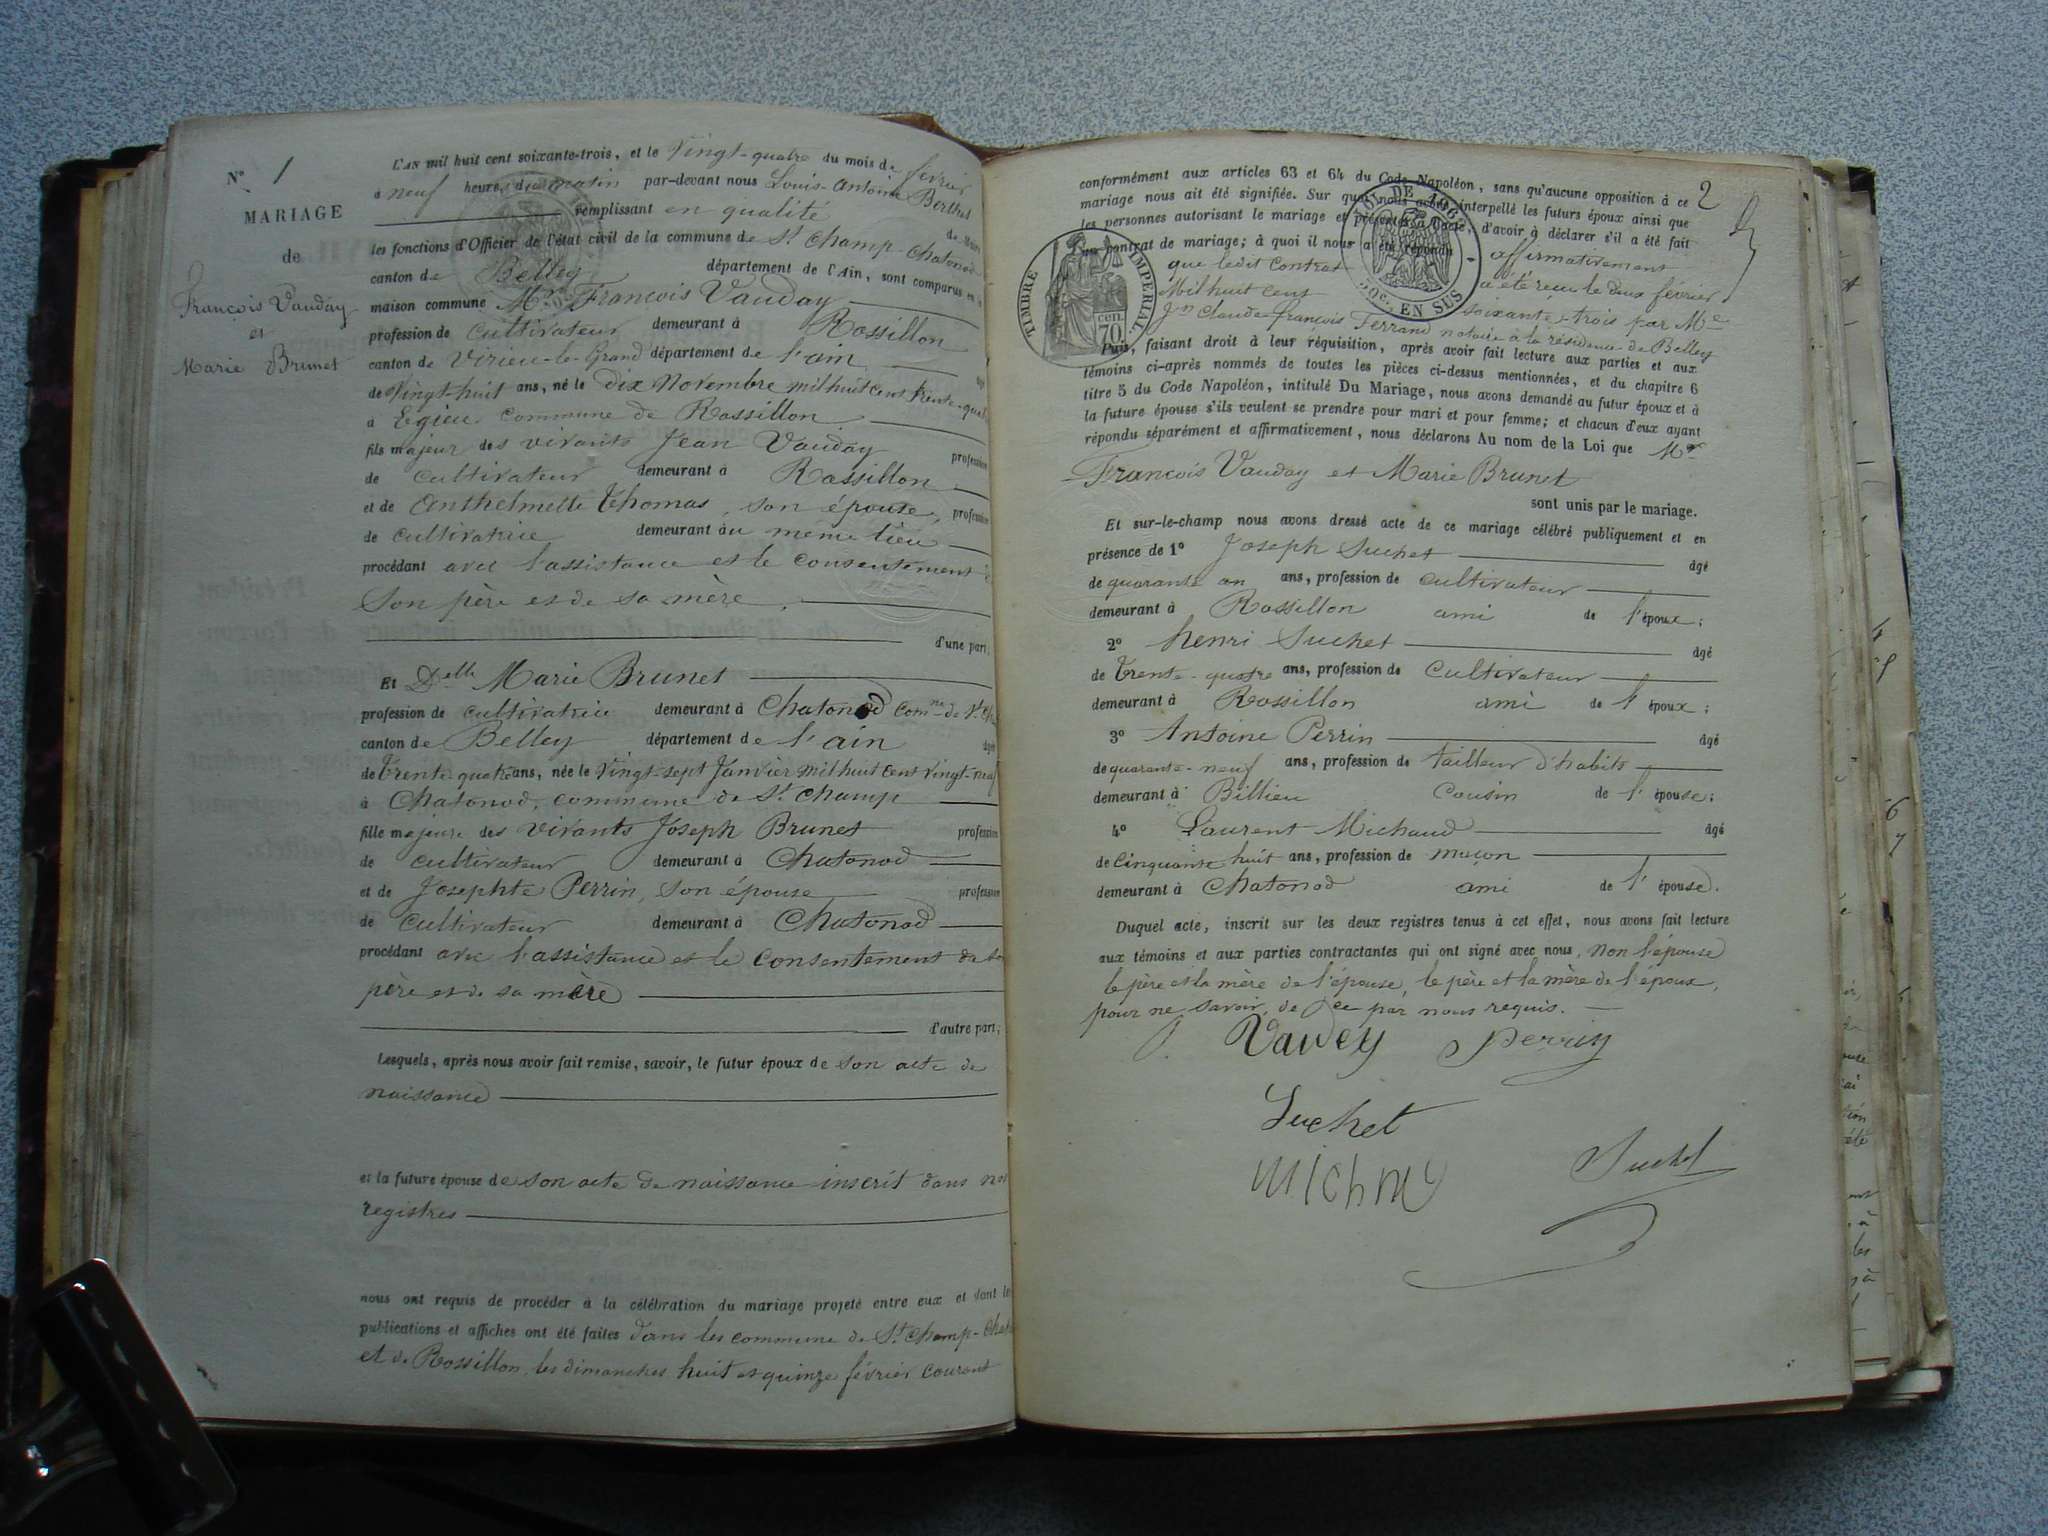 N° 1
MARIAGE
de
François Vauday
et
Marie Brunet
L'AN mil huit cent soixante-trois, et le Vingt-quatre du mois de février
à neuf heures du matin par-devant nous Louis-Antoine Berthet
remplissant en qualité de Maire
les fonctions d'Officier de l'état civil de la commune de St Champ-Chatonod
canton de Belley département de l'Ain, sont comparus en
maison commune Mr. François Vauday
profession de cultivateur demeurant à Rossillon
canton de Virieu-le-Grand département de l'ain âgé
de Vingt-huit ans, né le dix Novembre mil huit cent trente-quat
à Egieu commune de Rossillon
fils majeur des vivants Jean Vauday profession
de cultivateur demeurant à Rossillon
et de Anthelmette Thomas, son épouse, profession
de cultivatrice demeurant au même lieu
procédant avec l'assistance et le consentement de
Son père et de sa mère.
d'une part;
Et Delle Marie Brunet
profession de cultivatrice demeurant à Chatonod comne de St Cha
canton de Belley département de l'ain âgée
de Trente quatre ans, née le Vingt-sept Janvier mil huit cent vingt-neuf
à Chatonod, commune de St Champ
fille majeure des vivants Joseph Brunet profession
de cultivateur demeurant à Chatonod
et de Josephte Perrin, son épouse profession
de cultivateur demeurant à Chatonod
procédant avec l'assistance et le consentement de so
père et de sa mère
d'autre part;
Lesquels, après nous avoir fait remise, savoir, le futur époux de son acte de
naissance
et la future épouse de son acte de naissance inscrit dans nos
registres
nous ont requis de procéder à la célébration du mariage projeté entre eux et dont les
publications et affiches ont été faites dans les commune de St Champ-Chato
et de Rossillon, les dimanches huit et quinze février courant
2
conformément aux articles 63 et 64 du Code Napoléon, sans qu'aucune opposition à ce
mariage nous ait été signifiée. Sur quoi nous avons interpellé les futurs époux ainsi que
les personnes autorisant le mariage et présentes à l'acte, d'avoir à déclarer s'il a été fait
un contrat de mariage; à quoi il nous a été répondu affirmativement
que ledit contrat a été reçu le deux février
Mil huit cent soixante-trois par Me
Jn Claude-françois Ferrand notaire à la résidence de Belley
TIMBRE IMPERIAL
70 cen.
DE 1862
EN SUS
Puis, faisant droit à leur réquisition, après avoir fait lecture aux parties et aux
témoins ci-après nommés de toutes les pièces ci-dessus mentionnées, et du chapitre 6
titre 5 du Code Napoléon, intitulé Du Mariage, nous avons demandé au futur époux et à
la future épouse s'ils veulent se prendre pour mari et pour femme; et chacun d'eux ayant
répondu séparément et affirmativement, nous déclarons Au nom de la Loi que Mr
François Vauday et Marie Brunet
sont unis par le mariage.
Et sur-le-champ nous avons dressé acte de ce mariage célébré publiquement et en
présence de 1° Joseph Suchet âgé
de quarante un ans, profession de cultivateur
demeurant à Rossillon ami de l'époux;
2° henri Suchet âgé
de Trente-quatre ans, profession de Cultivateur
demeurant à Rossillon ami de l'époux;
3° Antoine Perrin âgé
de quarante-neuf ans, profession de tailleur d'habits
demeurant à Billieu Cousin de l'épouse;
4° Laurent Michaud âgé
de Cinquante huit ans, profession de maçon
demeurant à Chatonod ami de l'épouse.
Duquel acte, inscrit sur les deux registres tenus à cet effet, nous avons fait lecture
aux témoins et aux parties contractantes qui ont signé avec nous, Non l'épouse
le père et la mère de l'épouse, le père et la mère de l'époux,
pour ne savoir, de ce par nous requis.
Vaudey Perrin
Suchet
Suchet